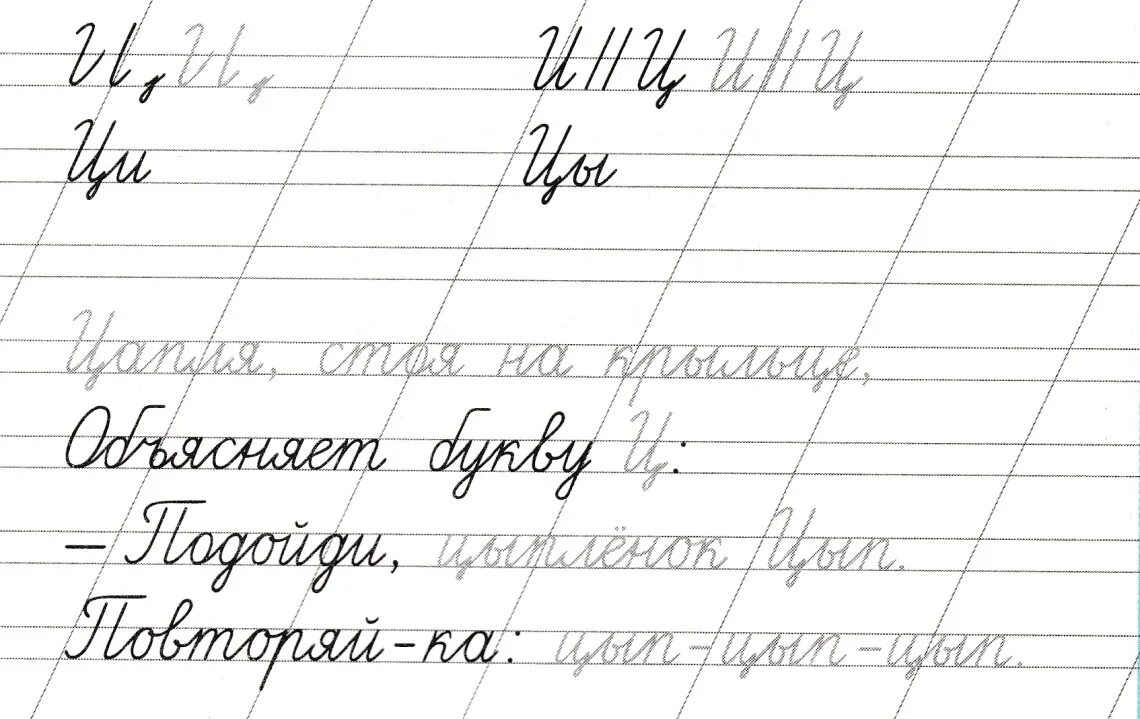 И Ц И Ц
Ци Цы
Цапля, стоя на крыльце,
Объясняет букву Ц:
– Подойди, цыплёнок Цып.
Повторяй-ка: цып-цып-цып.